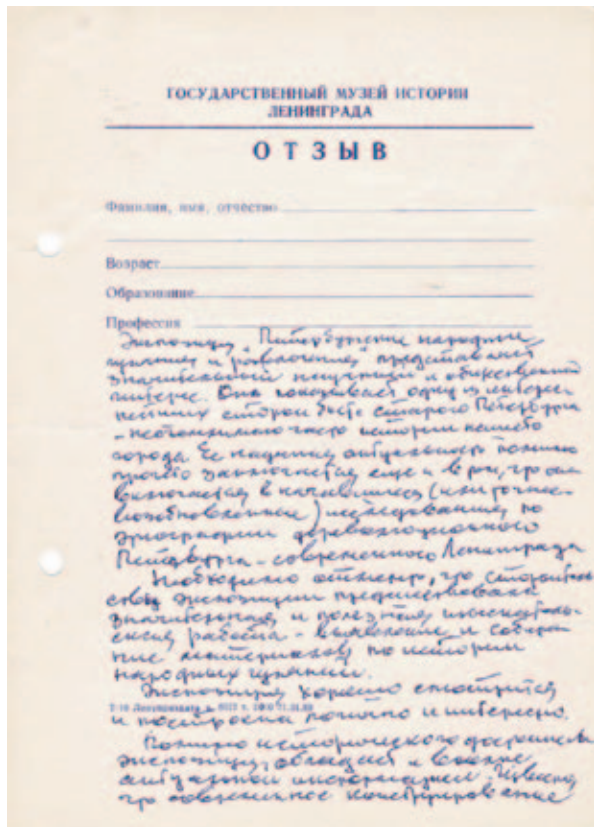 ГОСУДАРСТВЕННЫЙ МУЗЕЙ ИСТОРИИ
ЛЕНИНГРАДА
ОТЗЫВ
Фамилия, имя, отчество
Возраст
Образование
Профессия
Экспозиция "Петербургские народные
гуляния и развлечения" представляет
значительный научный и общественный
интерес. Она показывает одну из интерес-
нейших сторон быта старого Петербурга
- неотъемлемого часть истории нашего
города. Ее научная актуальность помимо
просто заключается еще и в том, что она
включается в начавшиеся (или точнее-
возобновленные) исследования по
этнографии дореволюционного
Петербурга - современного Ленинграда
Необходимо отметить, что строитель-
ству экспозиции предшествовала
значительная и полезная
работа - выявление и собира-
ние материалов по истории
народных гуляний.
Экспозиция хорошо смотрится
и построена логично и интересно.
Помимо исторического
экспозиция обладает и
актуальной информацией.
что современное конструирование